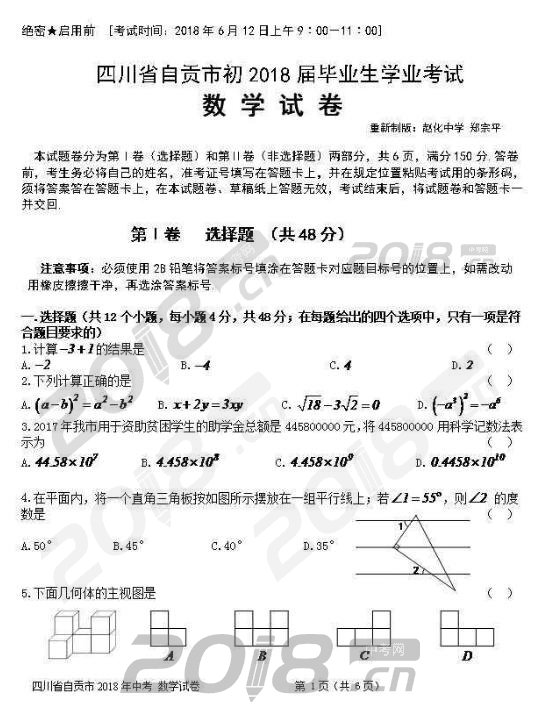 绝密★启用前 [考试时间：2018年6月12日上午9：00－11：00]
四川省自贡市初2018届毕业生学业考试
数 学 试 卷
重新制版：赵化中学 郑宗平
本试题卷分为第Ⅰ卷（选择题）和第Ⅱ卷（非选择题）两部分，共6页，满分150分.答卷
前，考生务必将自己的姓名，准考证号填写在答题卡上，并在规定位置粘贴考试用的条形码，
须将答案答在答题卡上，在本试题卷、草稿纸上答题无效，考试结束后，将试题卷和答题卡一
并交回.
第Ⅰ卷 选择题 （共48分）
注意事项：必须使用2B铅笔将答案标号填涂在答题卡对应题目标号的位置上，如需改动
用橡皮擦擦干净，再选涂答案标号.
一.选择题（共12个小题，每小题4分，共48分；在每题给出的四个选项中，只有一项是符
合题目要求的）
1.计算-3+1的结果是 （ ）
A. -2 B. -4 C. 4 D. 2
2.下列计算正确的是 （ ）
A. (a-b)²=a²-b² B. x+2y=3xy C. √18-3√2=0 D. (-a³)²=-a⁶
3.2017年我市用于资助贫困学生的助学金总额是445800000元，将445800000用科学记数法表
示为 （ ）
A. 44.58×10⁷ B. 4.458×10⁸ C. 4.458×10⁹ D. 0.4458×10¹⁰
4.在平面内，将一个直角三角板按如图所示摆放在一组平行线上；若∠1=55°，则∠2 的度
数是 （ ）
A.50° B.45° C.40° D.35°
1
2
5.下面几何体的主视图是 （ ）
A B C D
四川省自贡市2018年中考 数学试卷 第 1页（共 6页）
2018.cn
中考网